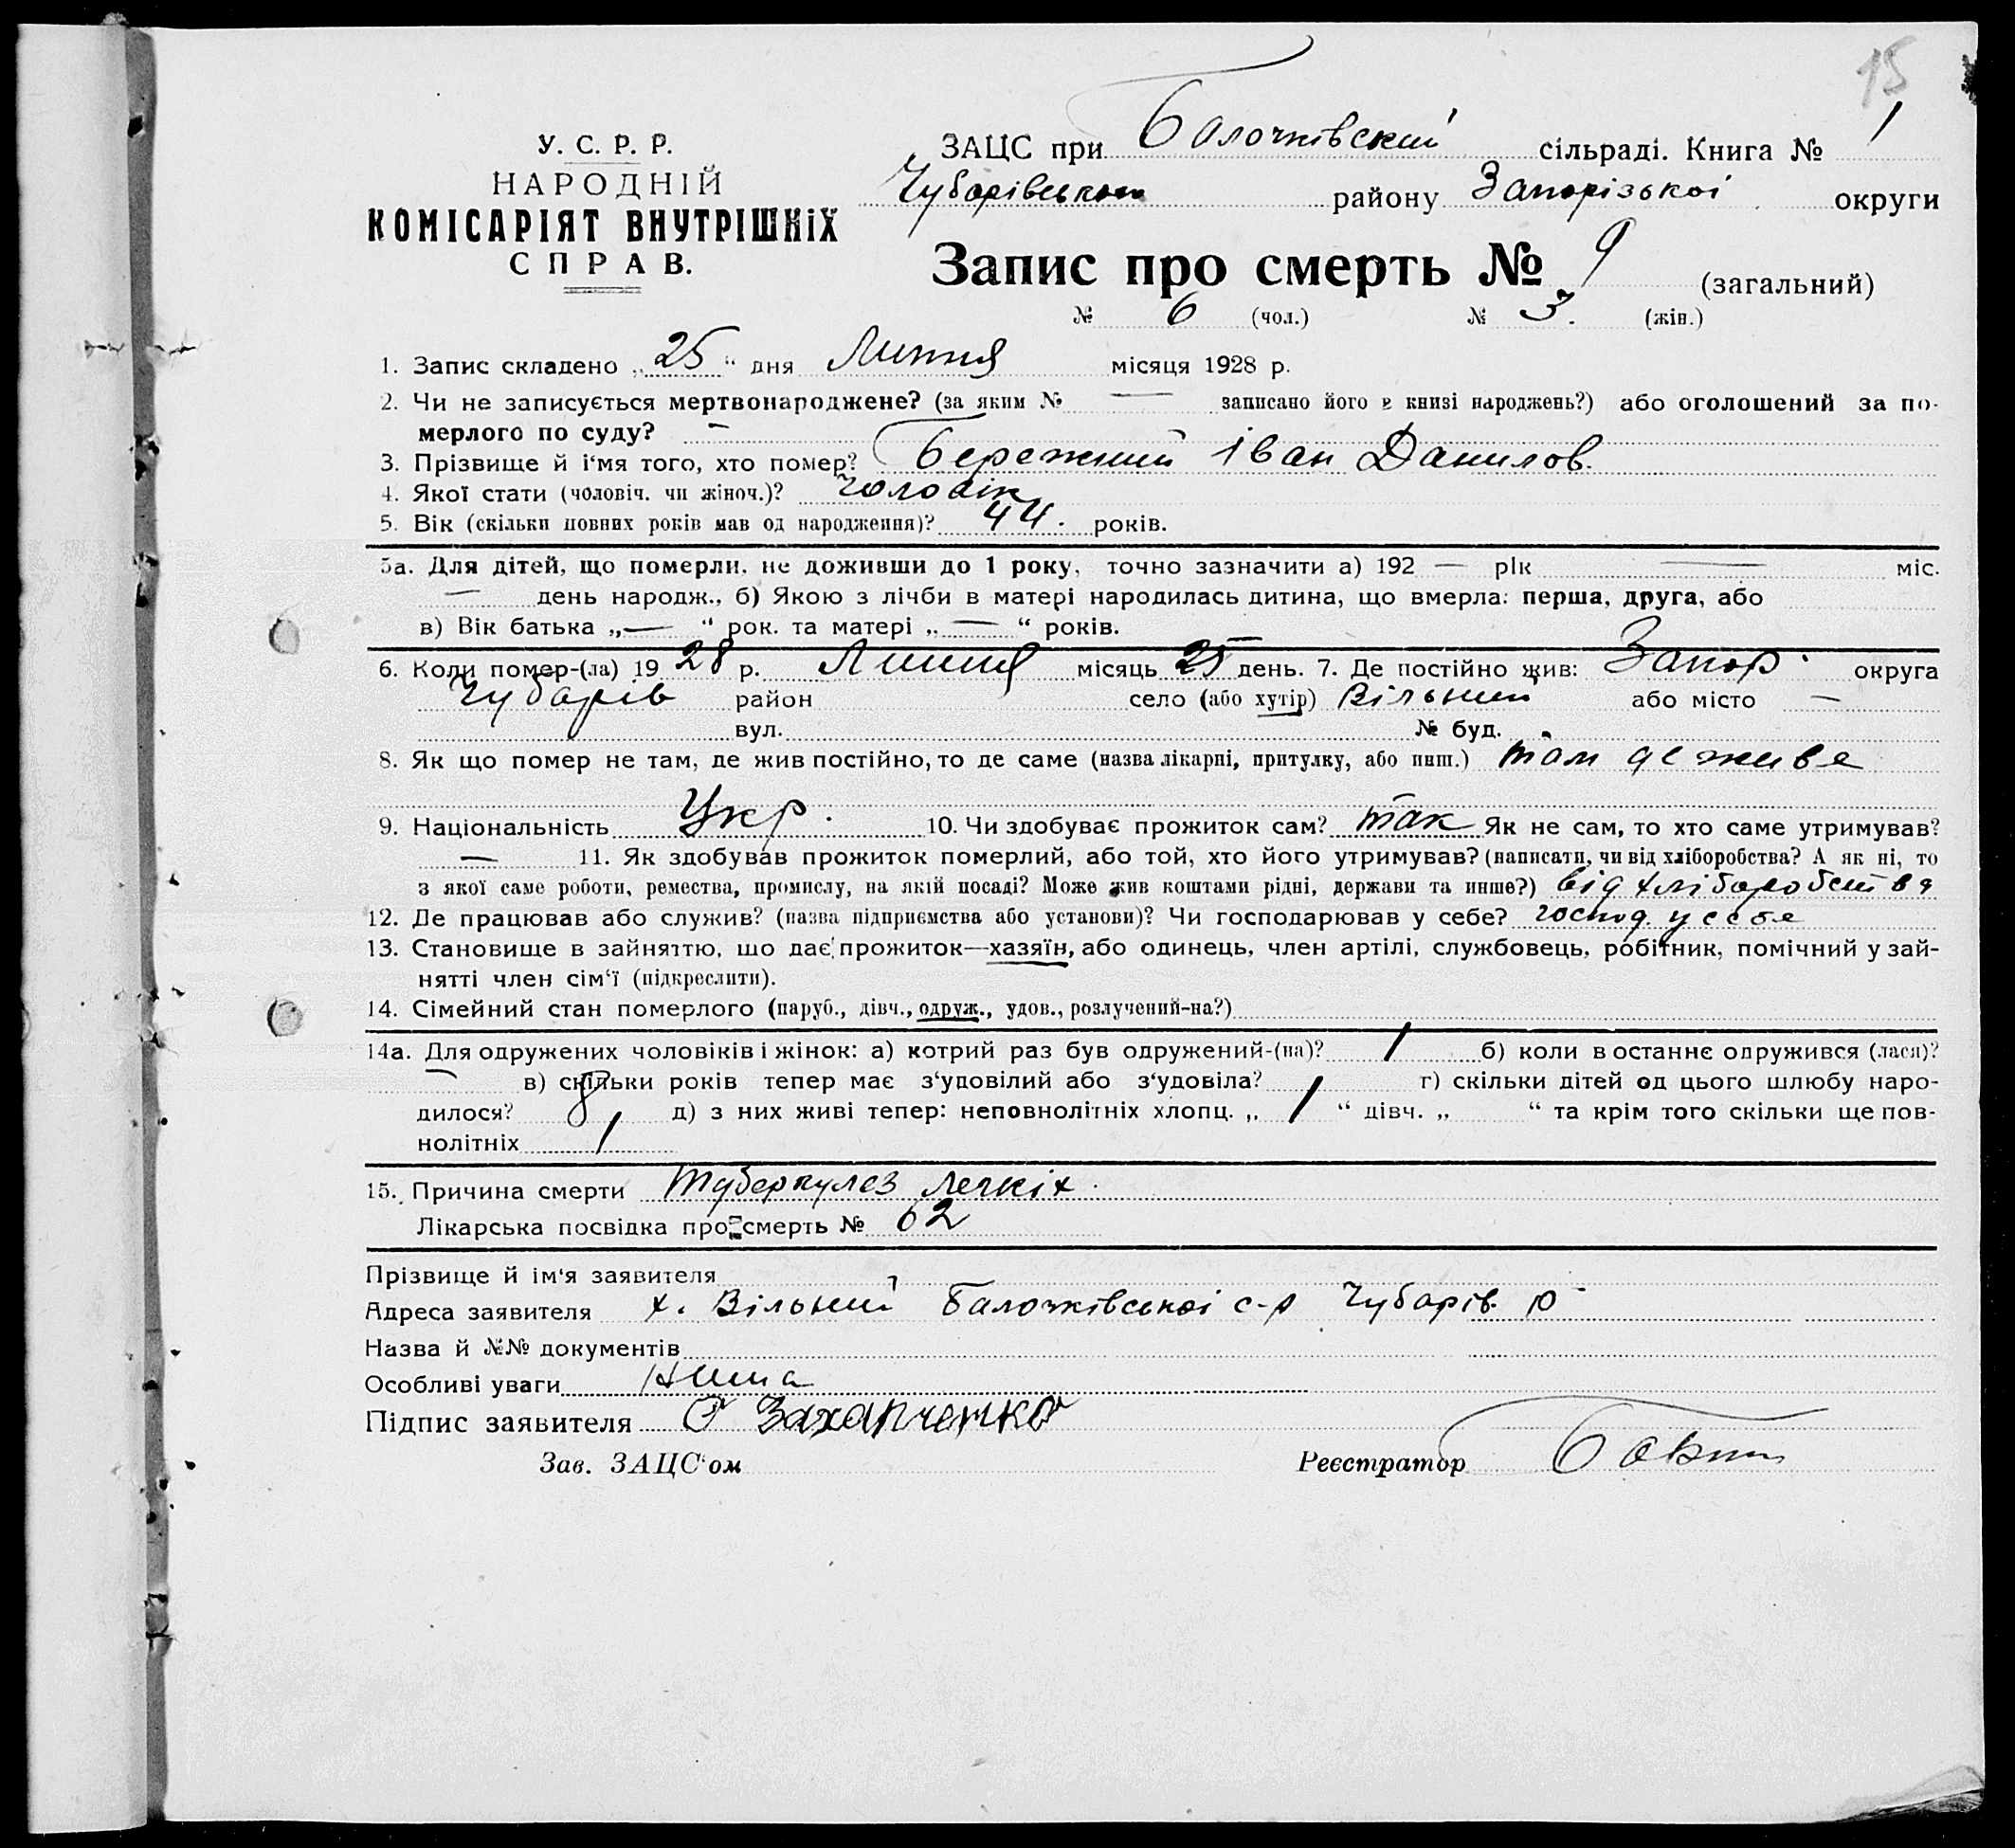 15
У. С. Р. Р.
НАРОДНІЙ
КОМІСАРІЯТ ВНУТРІШНІХ
СПРАВ.
ЗАЦС при Балочківский сільраді. Книга № 1
Чубарівського району Запорізької округи
Запис про смерть № 9 (загальний)
№ 6 (чол.) № 3. (жін.)
1. Запис складено „25" дня Липня місяця 1928 р.
2. Чи не записується мертвонароджене? (за яким № — записано його в книзі народжень?) або оголошений за по-
мерлого по суду? —
3. Прізвище й і'мя того, хто помер? Бережний Іван Данилов.
4. Якої стати (чоловіч. чи жіноч.)? Чоловік
5. Вік (скільки повних років мав од народження)? 44. років.
5а. Для дітей, що померли, не доживши до 1 року, точно зазначити а) 192 — рік — міс.
— день народж., б) Якою з лічби в матері народилась дитина, що вмерла: перша, друга, або
в) Вік батька „—" рок. та матері „—" років.
6. Коли помер-(ла) 1928 р. Липня місяць 25 день. 7. Де постійно жив: Запор. округа
Чубарів район село (або хутір) Вільний або місто —
вул. № буд.
8. Як що помер не там, де жив постійно, то де саме (назва лікарні, притулку, або инш.) там де живе
9. Національність Укр. 10. Чи здобуває прожиток сам? так Як не сам, то хто саме утримував?
— 11. Як здобував прожиток померлий, або той, хто його утримував? (написати, чи від хліборобства? А як ні, то
з якої саме роботи, ремества, промислу, на якій посаді? Може жив коштами рідні, держави та инше?) від хліборобства
12. Де працював або служив? (назва підприємства або установи)? Чи господарював у себе? господ. у себе
13. Становище в зайняттю, що дає прожиток—хазяїн, або одинець, член артілі, службовець, робітник, помічний у зай-
нятті член сім'ї (підкреслити).
14. Сімейний стан померлого (паруб., дівч., одруж., удов., розлучений-на?)
14а. Для одружених чоловіків і жінок: а) котрий раз був одружений-(на)? 1 б) коли в останнє одружився (лася)?
— в) скільки років тепер має з'удовілий або з'удовіла? г) скільки дітей од цього шлюбу наро-
дилося? 8, д) з них живі тепер: неповнолітніх хлопц. „1" дівч. „ " та крім того скільки ще пов-
нолітніх 1
15. Причина смерти Туберкулез легкіх.
Лікарська посвідка про смерть № 62
Прізвище й ім'я заявителя
Адреса заявителя х. Вільний Балочківської с-р Чубарів. р
Назва й №№ документів
Особливі уваги
Підпис заявителя Захарченко
Зав. ЗАЦС'ом Реєстратор